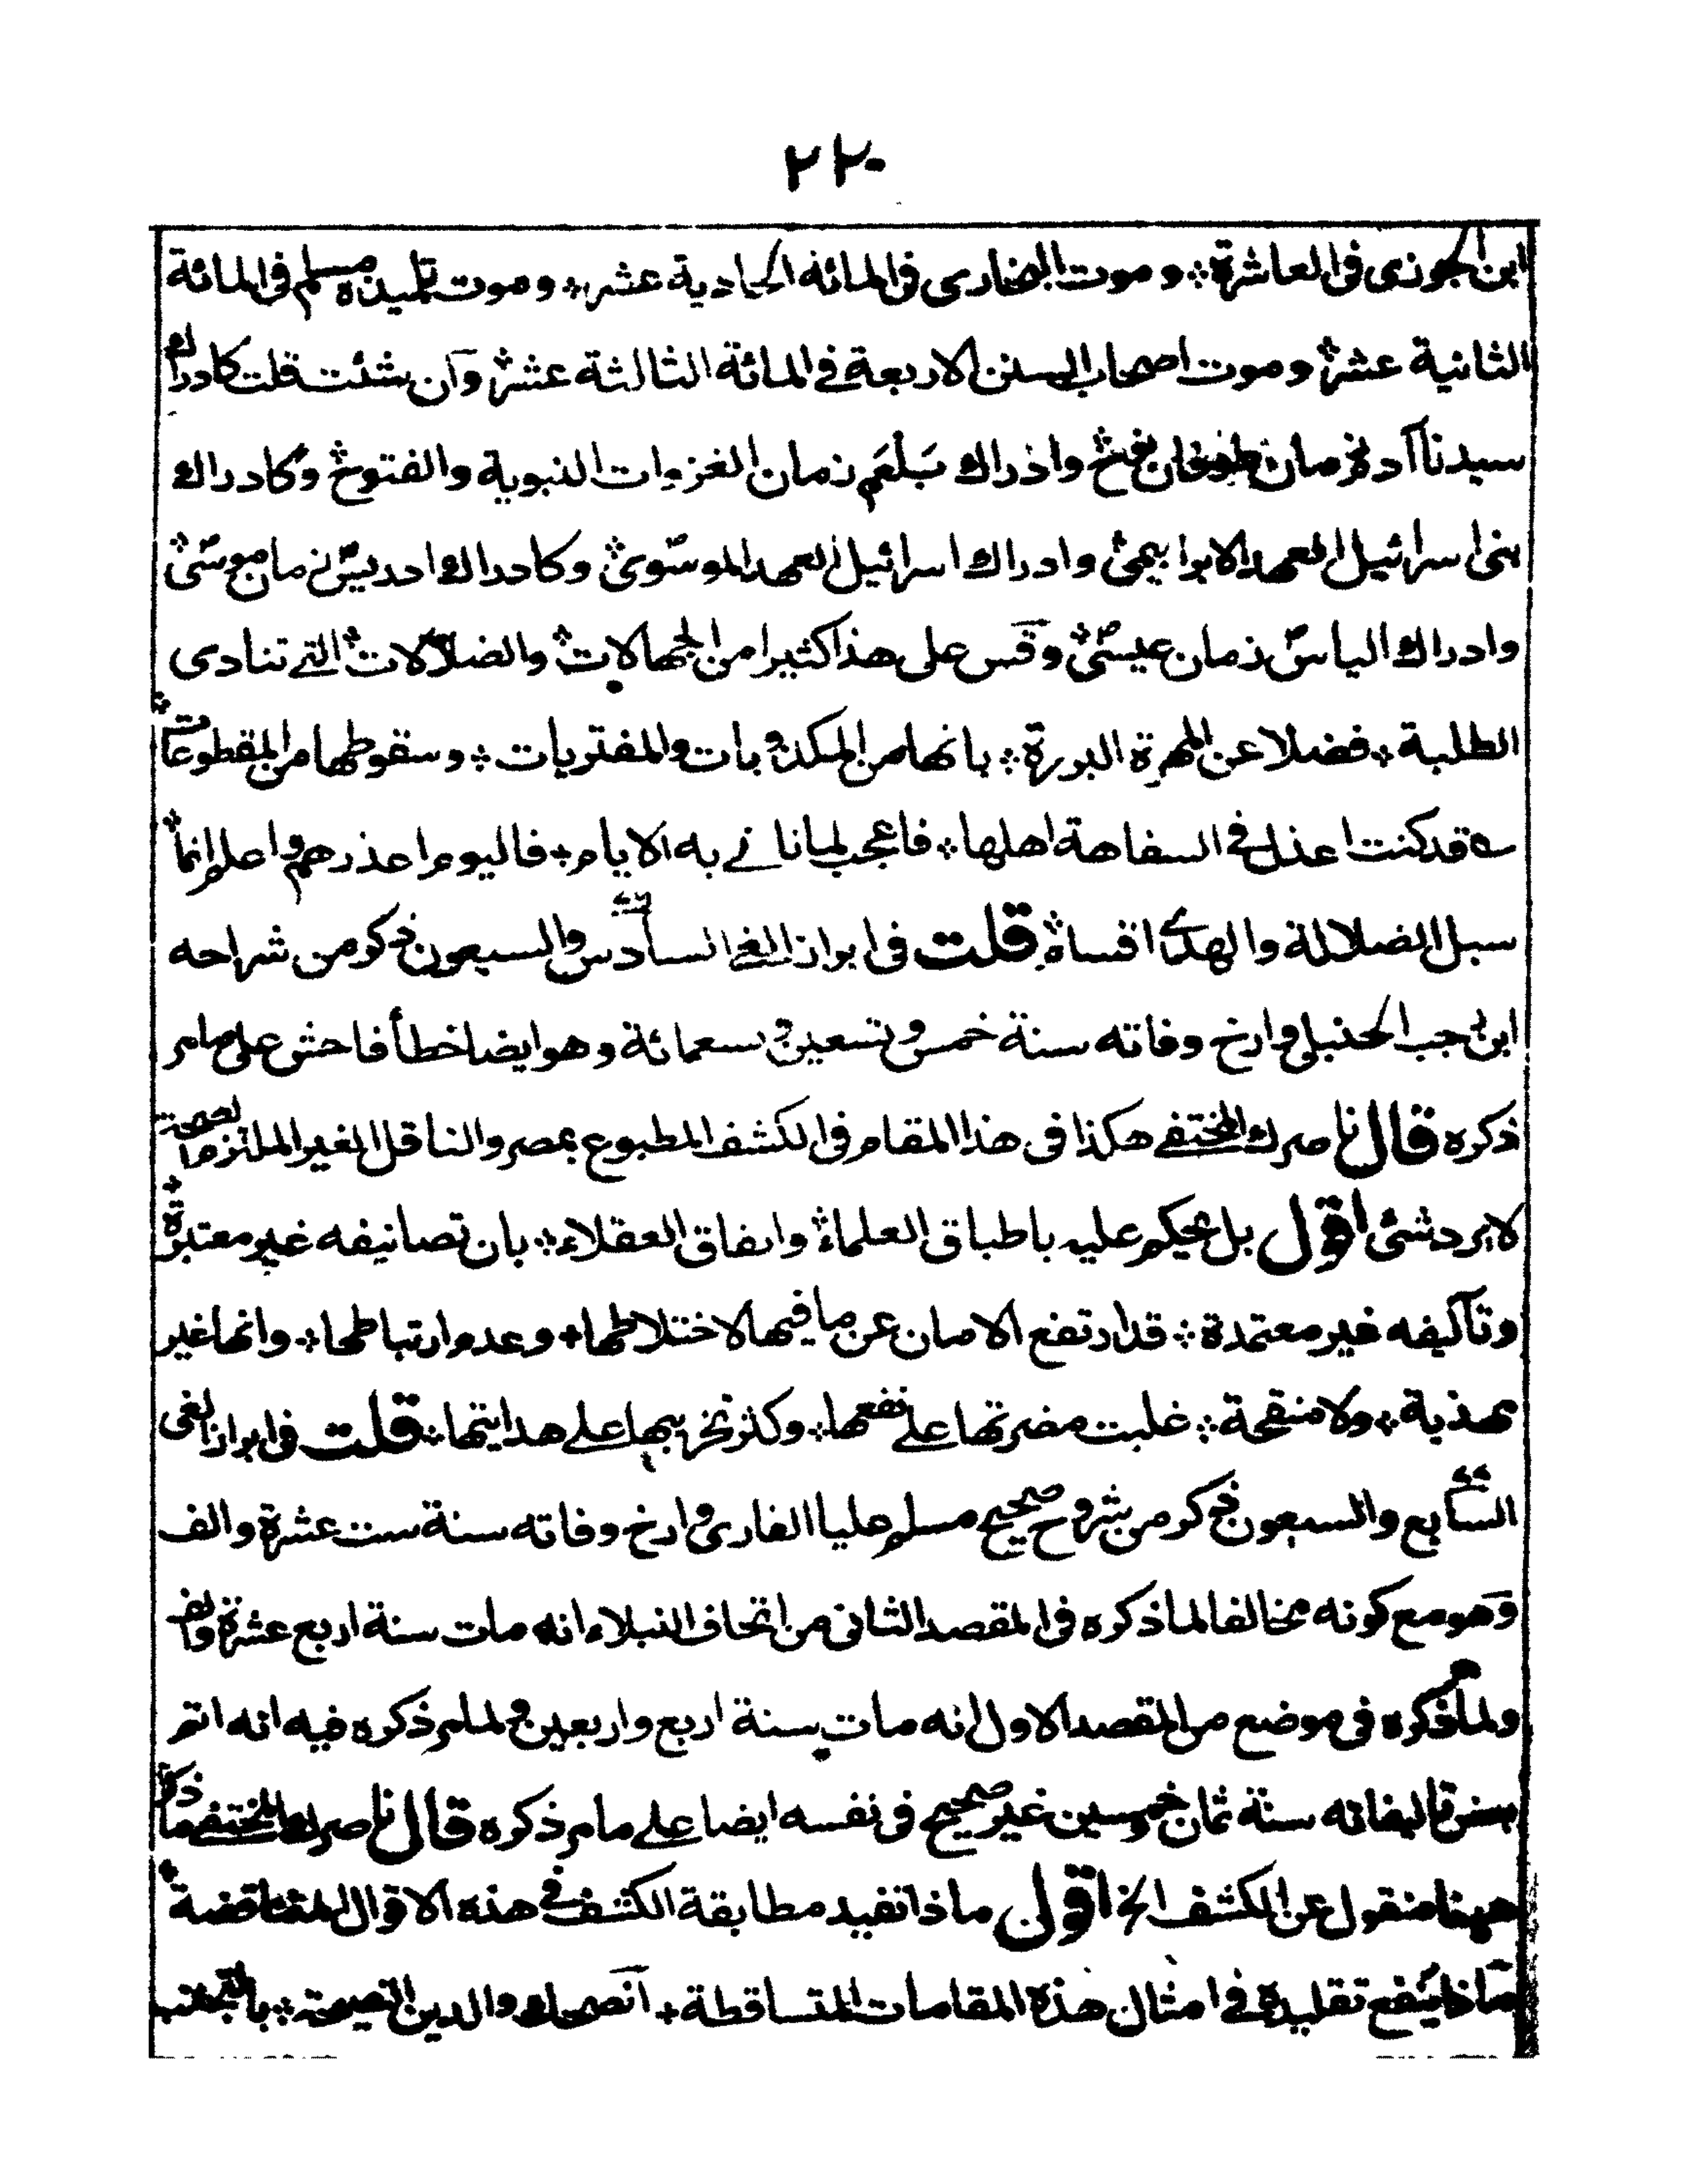 ٢٢٠
ابن الجوزى فى العاشرة ؞ وموت البخارى فى المائة الحادية عشر ؞ وموت تلميذه مسلم فى المائة
الثانية عشر ؞ وموت اصحاب السنن الاربعة فے المائة الثالثة عشر ؞ وان شئت قلت كادراك
سيدنا آدم زمان طوفان نوح ؞ وادراك بلعم زمان الغزوات النبوية والفتوح ؞ وكادراك
بنى اسرائيل العهد الابراهيمى ؞ وادراك اسرائيل العهد الموسوى ؞ وكادراك ادريس زمان موسى ؞
وادراك الياس زمان عيسى ؞ وقس على هذا كثيرا من الجهالات ؞ والضلالات ؞ التے تنادى
الطلبة ؞ فضلا عن المهرة البررة ؞ بانها من المكذوبات والمفتريات ؞ وسقوطها من المقطوعات ؞
ے قد كنت اعذل فے السفاهة اهلها ؞ فاعجب لما تاتے به الايام ؞ فاليوم اعذرهم واعلم انما ؞
سبل الضلالة والهدى اقسام ؞ قلت فى ابراز الغى السادس والسبعون ذكر من شراحه
ابن رجب الحنبلى وارخ وفاته سنة خمس وتسعين وسعمائة وهو ايضا خطأ فاحش على ما مر
ذكره قال ناصرك المختفے هكذا فى هذا المقام فى الكشف المطبوع بمصر والناقل الغير الملتزم لصحة ما
لا يرد شئ اقول بل يحكم عليه باطباق العلماء ؞ واتفاق العقلاء ؞ بان تصانيفه غير معتبرة ؞
وتآليفه غير معتمدة ؞ قد ارتفع الامان عن ما فيها لاختلاطها ؞ وعدم ارتباطها ؞ وانها غير
مهذبة ؞ ولا منقحة ؞ غلبت مضرتها علے نفعها ؞ وكثر تخريبها علے هدايتها ؞ قلت فى ابراز الغى
السابع والسبعون ذكر من شروح صحيح مسلم عليا القارى وارخ وفاته سنة ست عشرة والف
وهو مع كونه مخالفا لما ذكره فى المقصد الثانى من اتحاف النبلاء انه مات سنة اربع عشرة والف
ولما ذكره فى موضع من المقصد الاول انه مات سنة اربع واربعين ولما مر ذكره فيه انه اتم
بعض تاليفاته سنة ثمان خمسين غير صحيح فى نفسه ايضا علے ما مر ذكره قال ناصرك المختفے ما ذكر
ههنا منقول عن الكشف الخ اقول ماذا تفيد مطابقة الكشف فے هذه الاقوال المتناقضة ؞
وماذا ينفع تقليده فے امثال هذه المقامات المتساقطة ؞ انصحك والدين النصيحة ؞